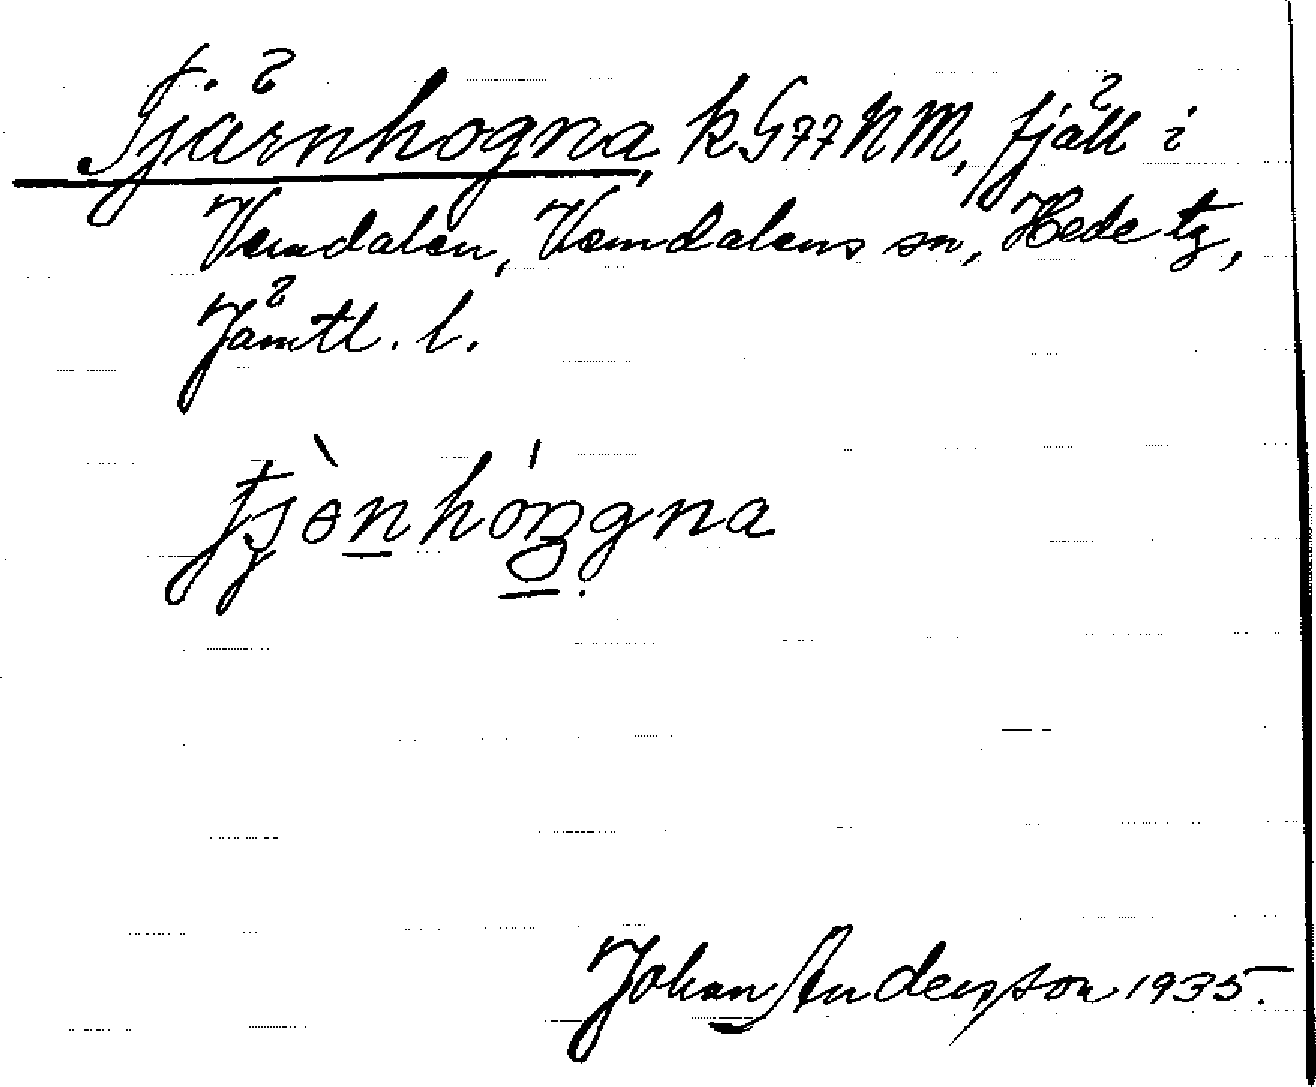 Tjärnhogna, k G77 NM, fjäll i
Vemdalen, Vemdalens sn, Hede tg,
Jämtl. l.
tjønhóŋgna
Johan Anderson 1935.